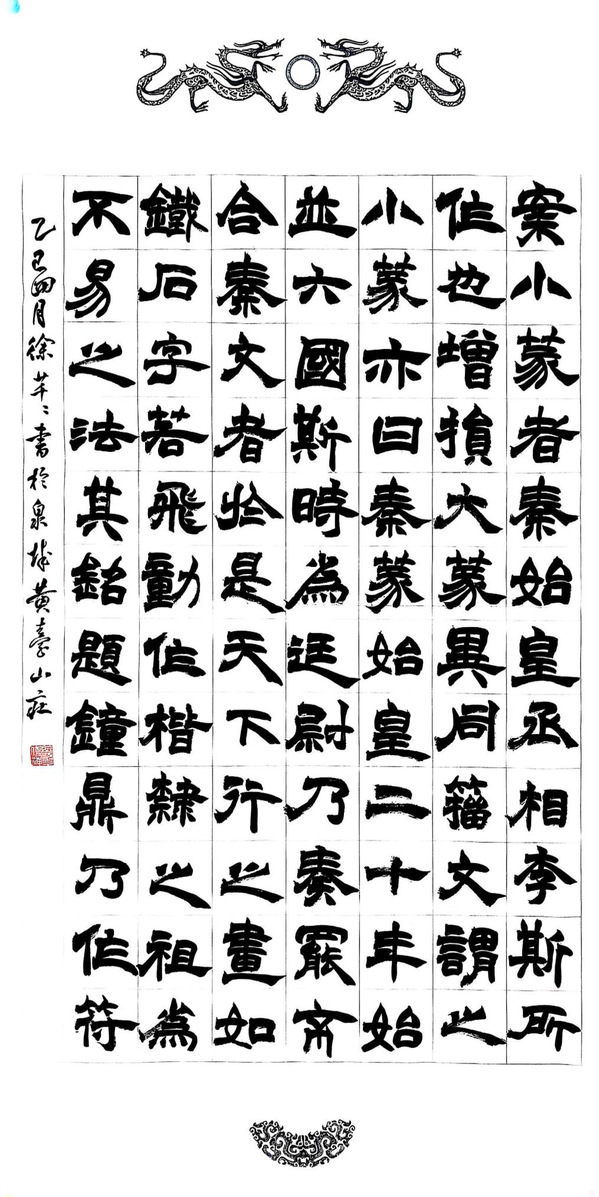 案小篆者秦始皇丞相李斯所
作也增損大篆異同籀文謂之
小篆亦曰秦篆始皇二十年始
並六國斯時為廷尉乃奏罷
合秦文者於是天下行之畫如
鐵石字若飛動作楷隸之祖為
不易之法其銘題鐘鼎乃作符
乙巳四月徐芊〻書於泉城黃臺山莊